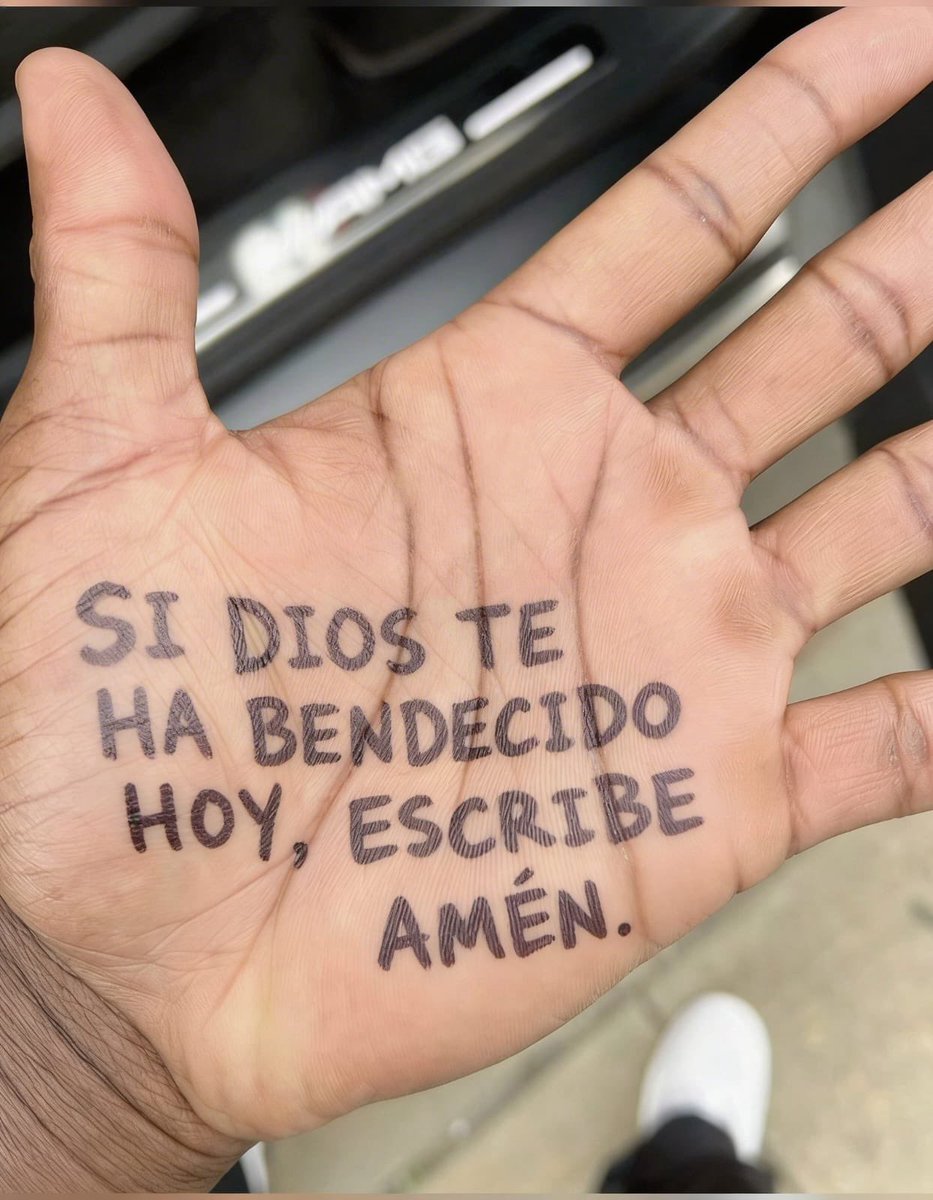 AMG
SI DIOS TE
HA BENDECIDO
HOY, ESCRIBE
AMÉN.